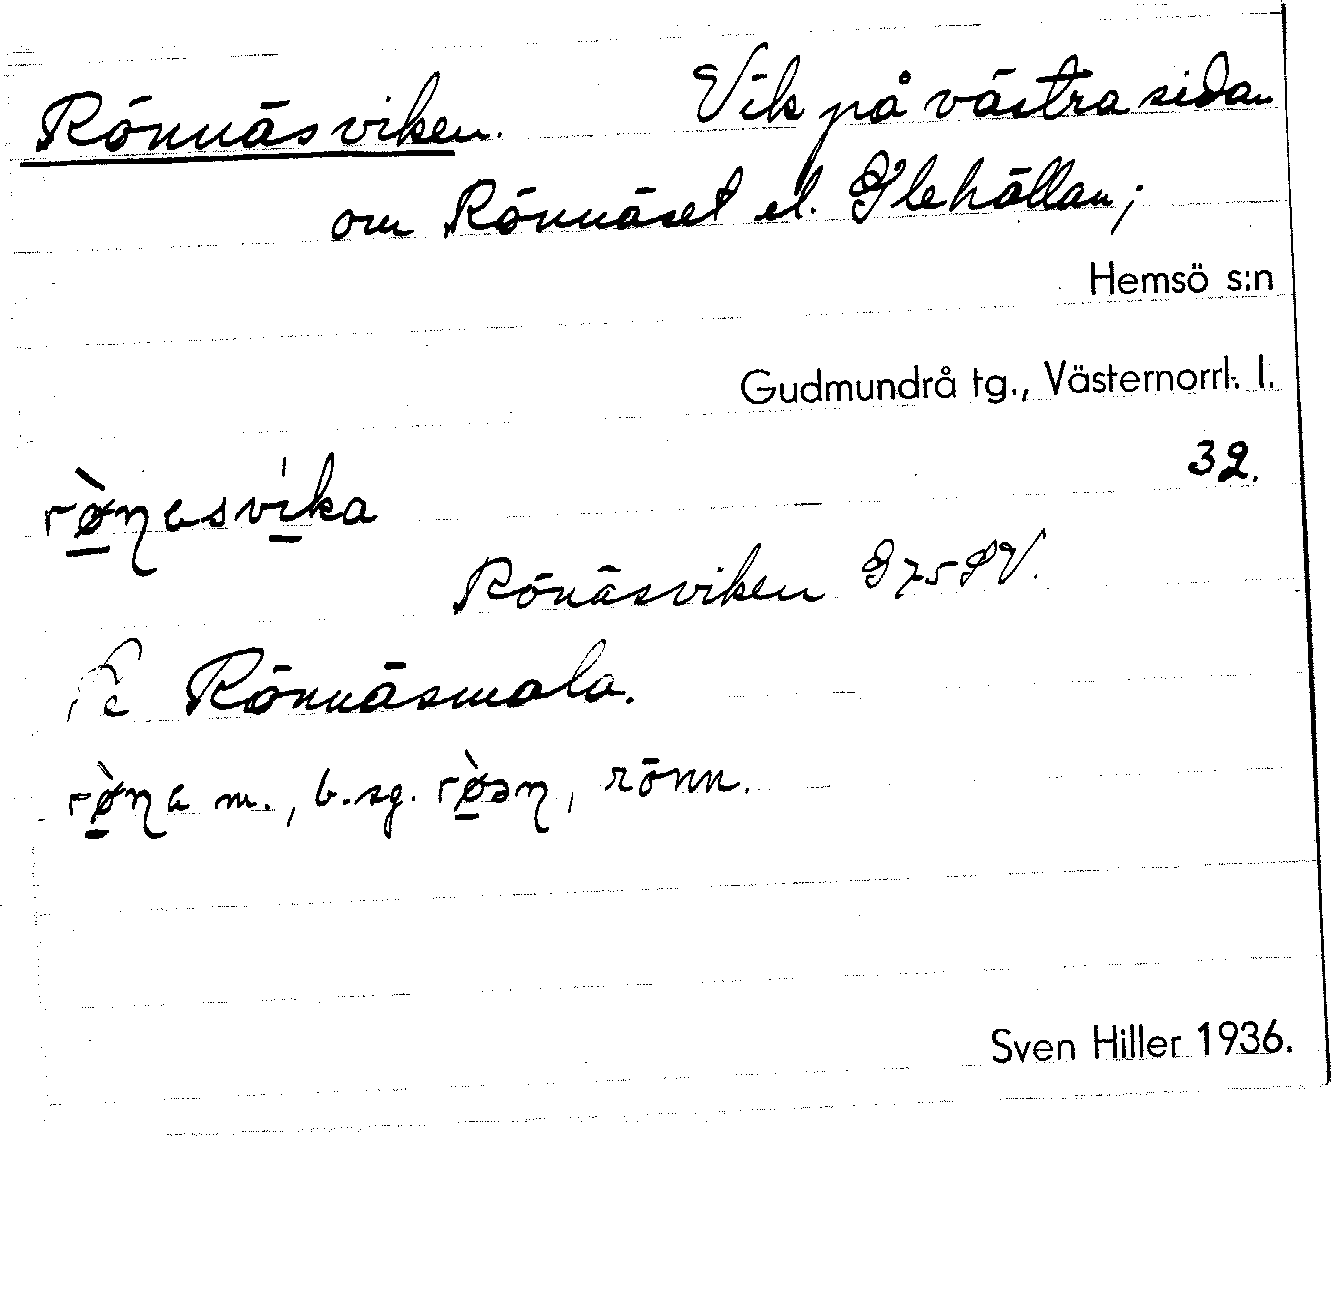 Rönnäsviken. Vik på västra sidan
om Rönnäset el. Glehällan;
Hemsö s:n
Gudmundrå tg., Västernorrl. l.
32.
Rönäsviken G 75 SV.
Rönnäsmala.
m., b.sg. , rönn.
Sven Hiller 1936.